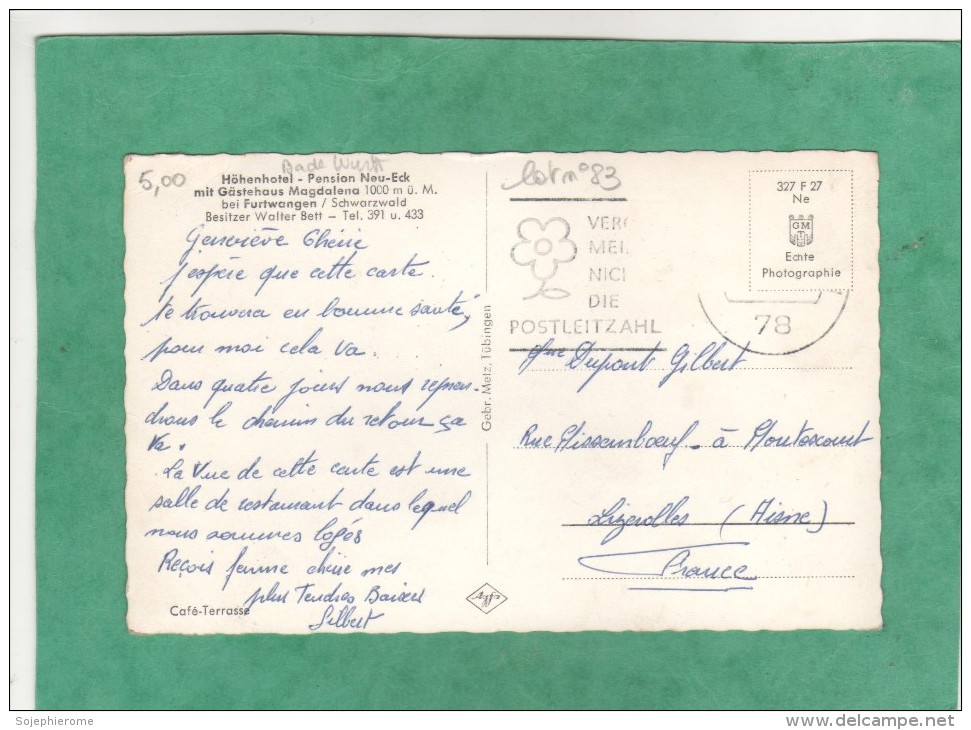 5,00
Bade Wurtt
Höhenhotel - Pension Neu-Eck
mit Gästehaus Magdalena 1000 m ü. M.
bei Furtwangen / Schwarzwald
Besitzer Walter Bett - Tel. 391 u. 433
Geneviève Chérie
j'espère que cette carte
te trouvera en bonne santé,
pour moi cela va.
Dans quatre jours nous repren-
drons le chemin du retour ça
va.
La Vue de cette carte est une
salle de restaurant dans lequel
nous sommes logés
Reçois femme chérie mes
plus Tendres Baisers
Gilbert
Café-Terrasse
Gebr. Metz, Tübingen
Agfa
lot n°83
VERG
MEI
NICH
DIE
POSTLEITZAHL
78
327 F 27
Ne
GM
T
Echte
Photographie
Mme Dupont Gilbert
Rue à Montescourt
Lizerolles (Aisne)
France
Sojephierome
www.delcampe.net